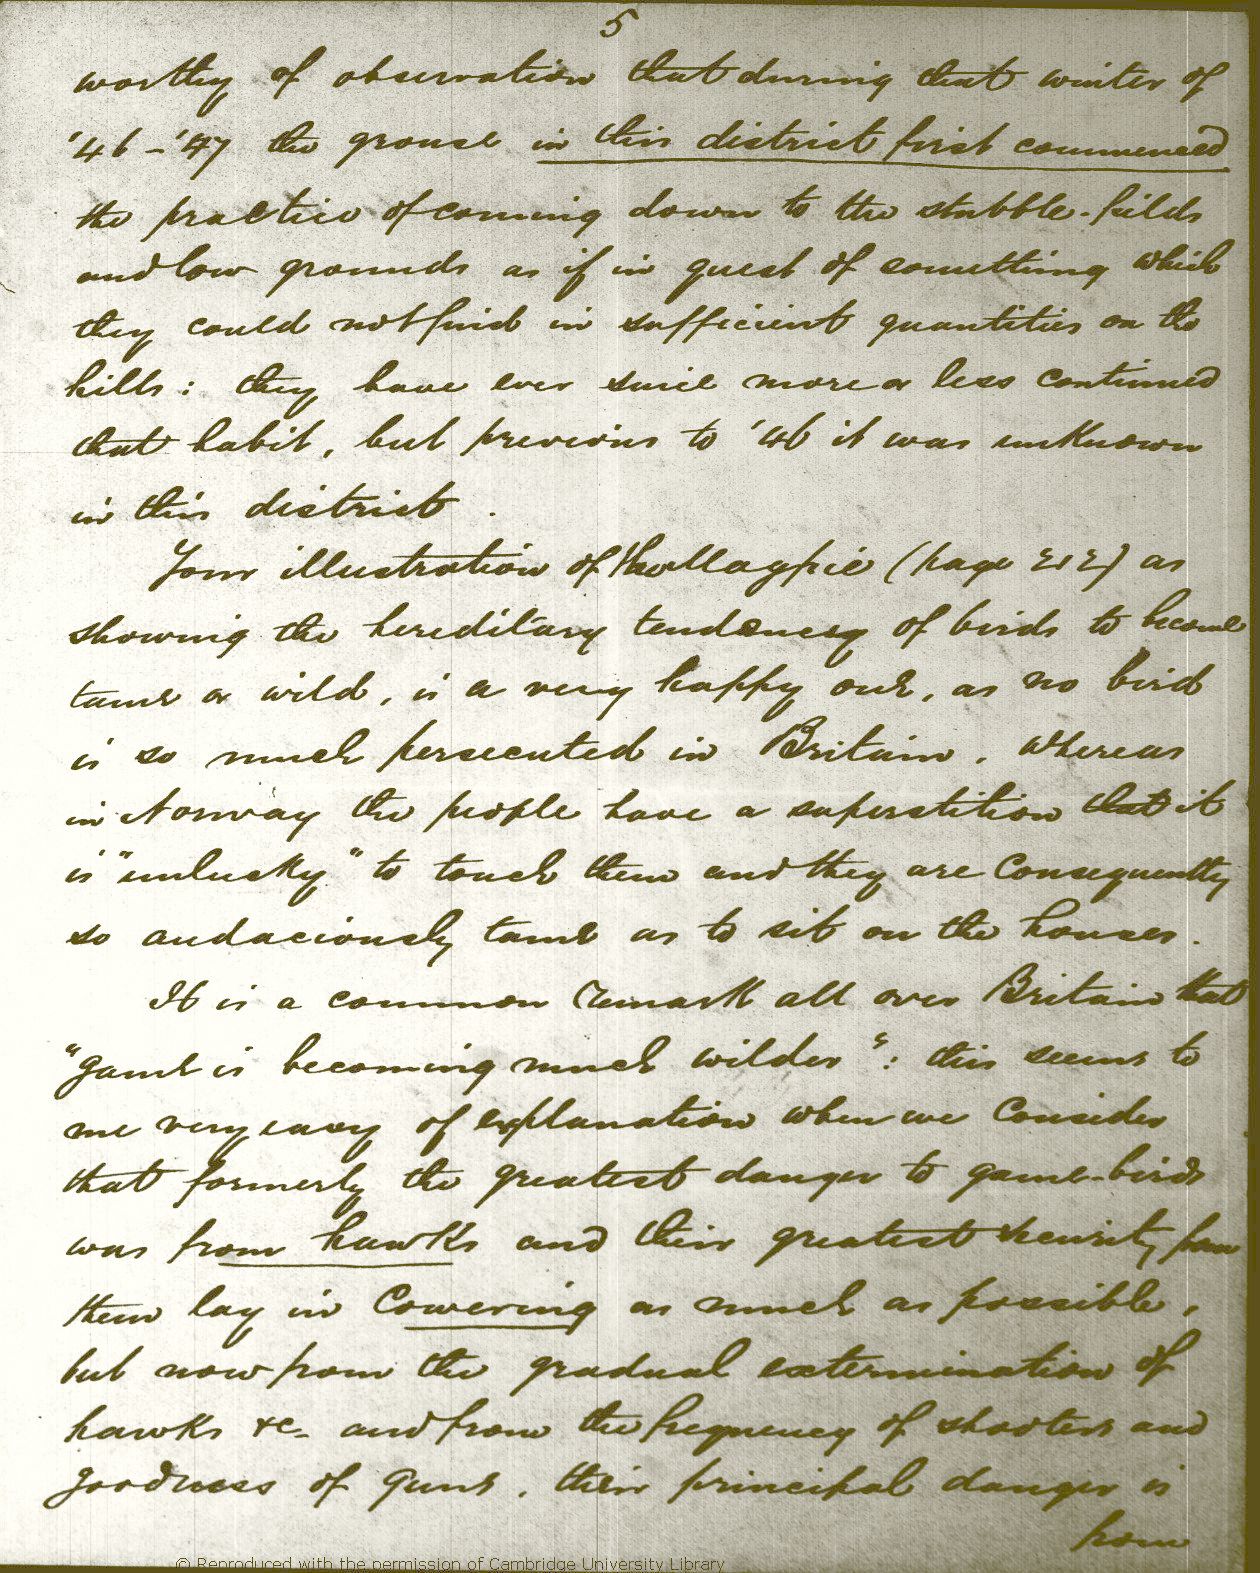 5
worthy of observation that during that winter of
'46 - '47 the grouse in this district first commenced
the practice of coming down to the stubble-fields
and low grounds as if in quest of something which
they could not find in sufficient quantities on the
hills: they have ever since more or less continued
that habit, but previous to '46 it was unknown
in this district.
Your illustration of the Magpie (page 212) as
showing the hereditary tendency of birds to become
tame or wild, is a very happy one, as no bird
is so much persecuted in Britain, whereas
in Norway the people have a superstition that it
is "unlucky" to touch them and they are consequently
so audaciously tame as to sit on the houses.
It is a common remark all over Britain that
"game is becoming much wilder": this seems to
me very easy of explanation when we consider
that formerly the greatest danger to game-birds
was from hawks and their greatest security from
them lay in cowering as much as possible,
but now from the gradual extermination of
hawks &c. and from the frequency of shooters and
goodness of guns, their principal danger is
from
© Reproduced with the permission of Cambridge University Library